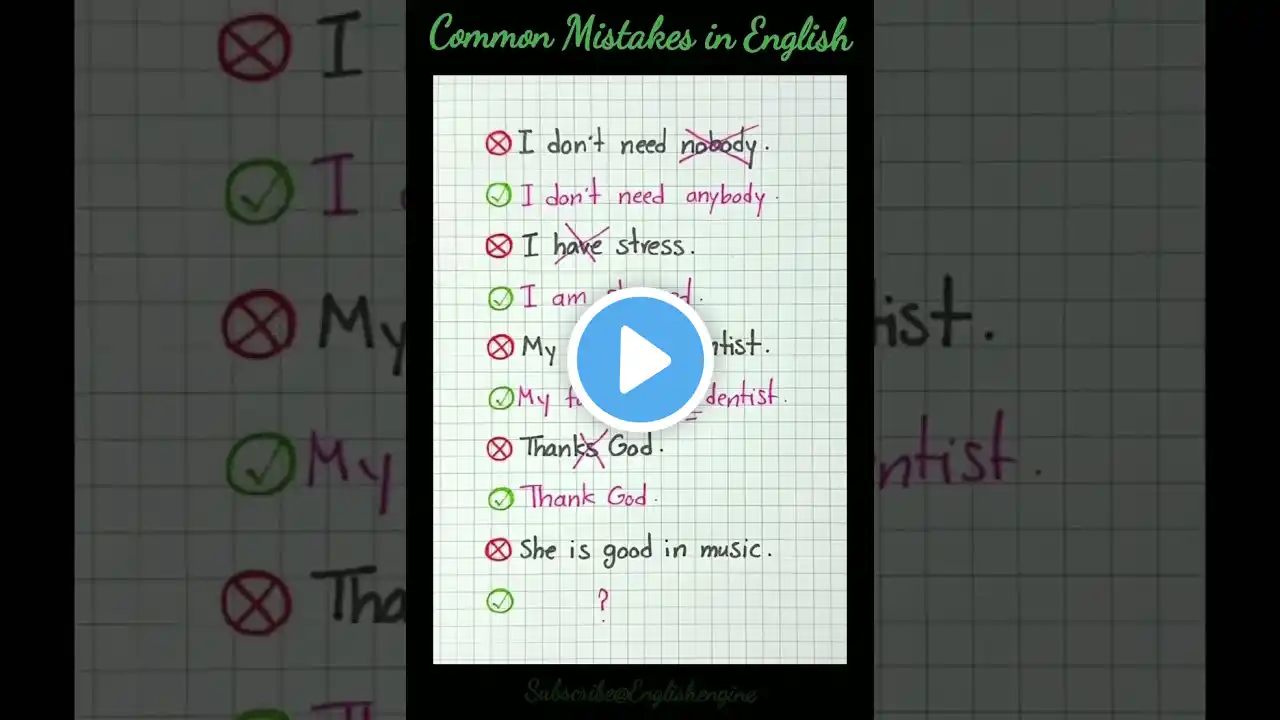 Common Mistakes in English
I don't need nobody.
I don't need anybody.
I have stress.
I am
My
My dentist.
Thanks God.
Thank God.
She is good in music.
?
Subscribe@Englishengine